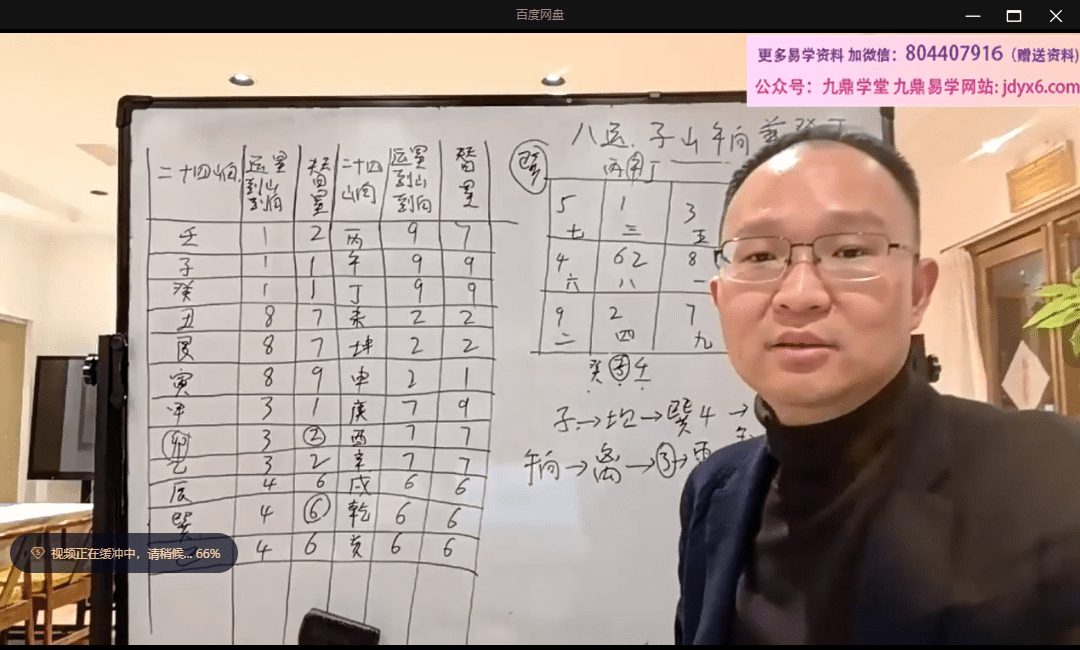 百度网盘
更多易学资料 加微信：804407916（赠送资料)
公众号：九鼎学堂 九鼎易学网站: jdyx6.com
八运.子山午向兼癸丁
丙午丁
二十四山向 运星到山到向 替星 二十四山向 运星到山到向 替星
壬 1 2 丙 9 7
子 1 1 午 9 9
癸 1 1 丁 9 9
丑 8 7 未 2 2
艮 8 7 坤 2 2
寅 8 9 申 2 1
甲 3 1 庚 7 9
卯 3 ② 酉 7 7
乙 3 2 辛 7 7
辰 4 6 戌 6 6
巽 4 ⑥ 乾 6 6
4 6 亥 6 6
5 1 3
七 三 五
4 62 8
六 八 一
9 2 7
二 四 九
癸 子
子→坎→巽4→
午向→离→③→
视频正在缓冲中，请稍候... 66%